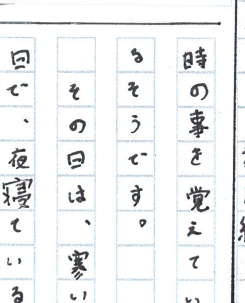 時の事を覚えてい
るそうです。
その日は、寒い
日で、夜寝ている